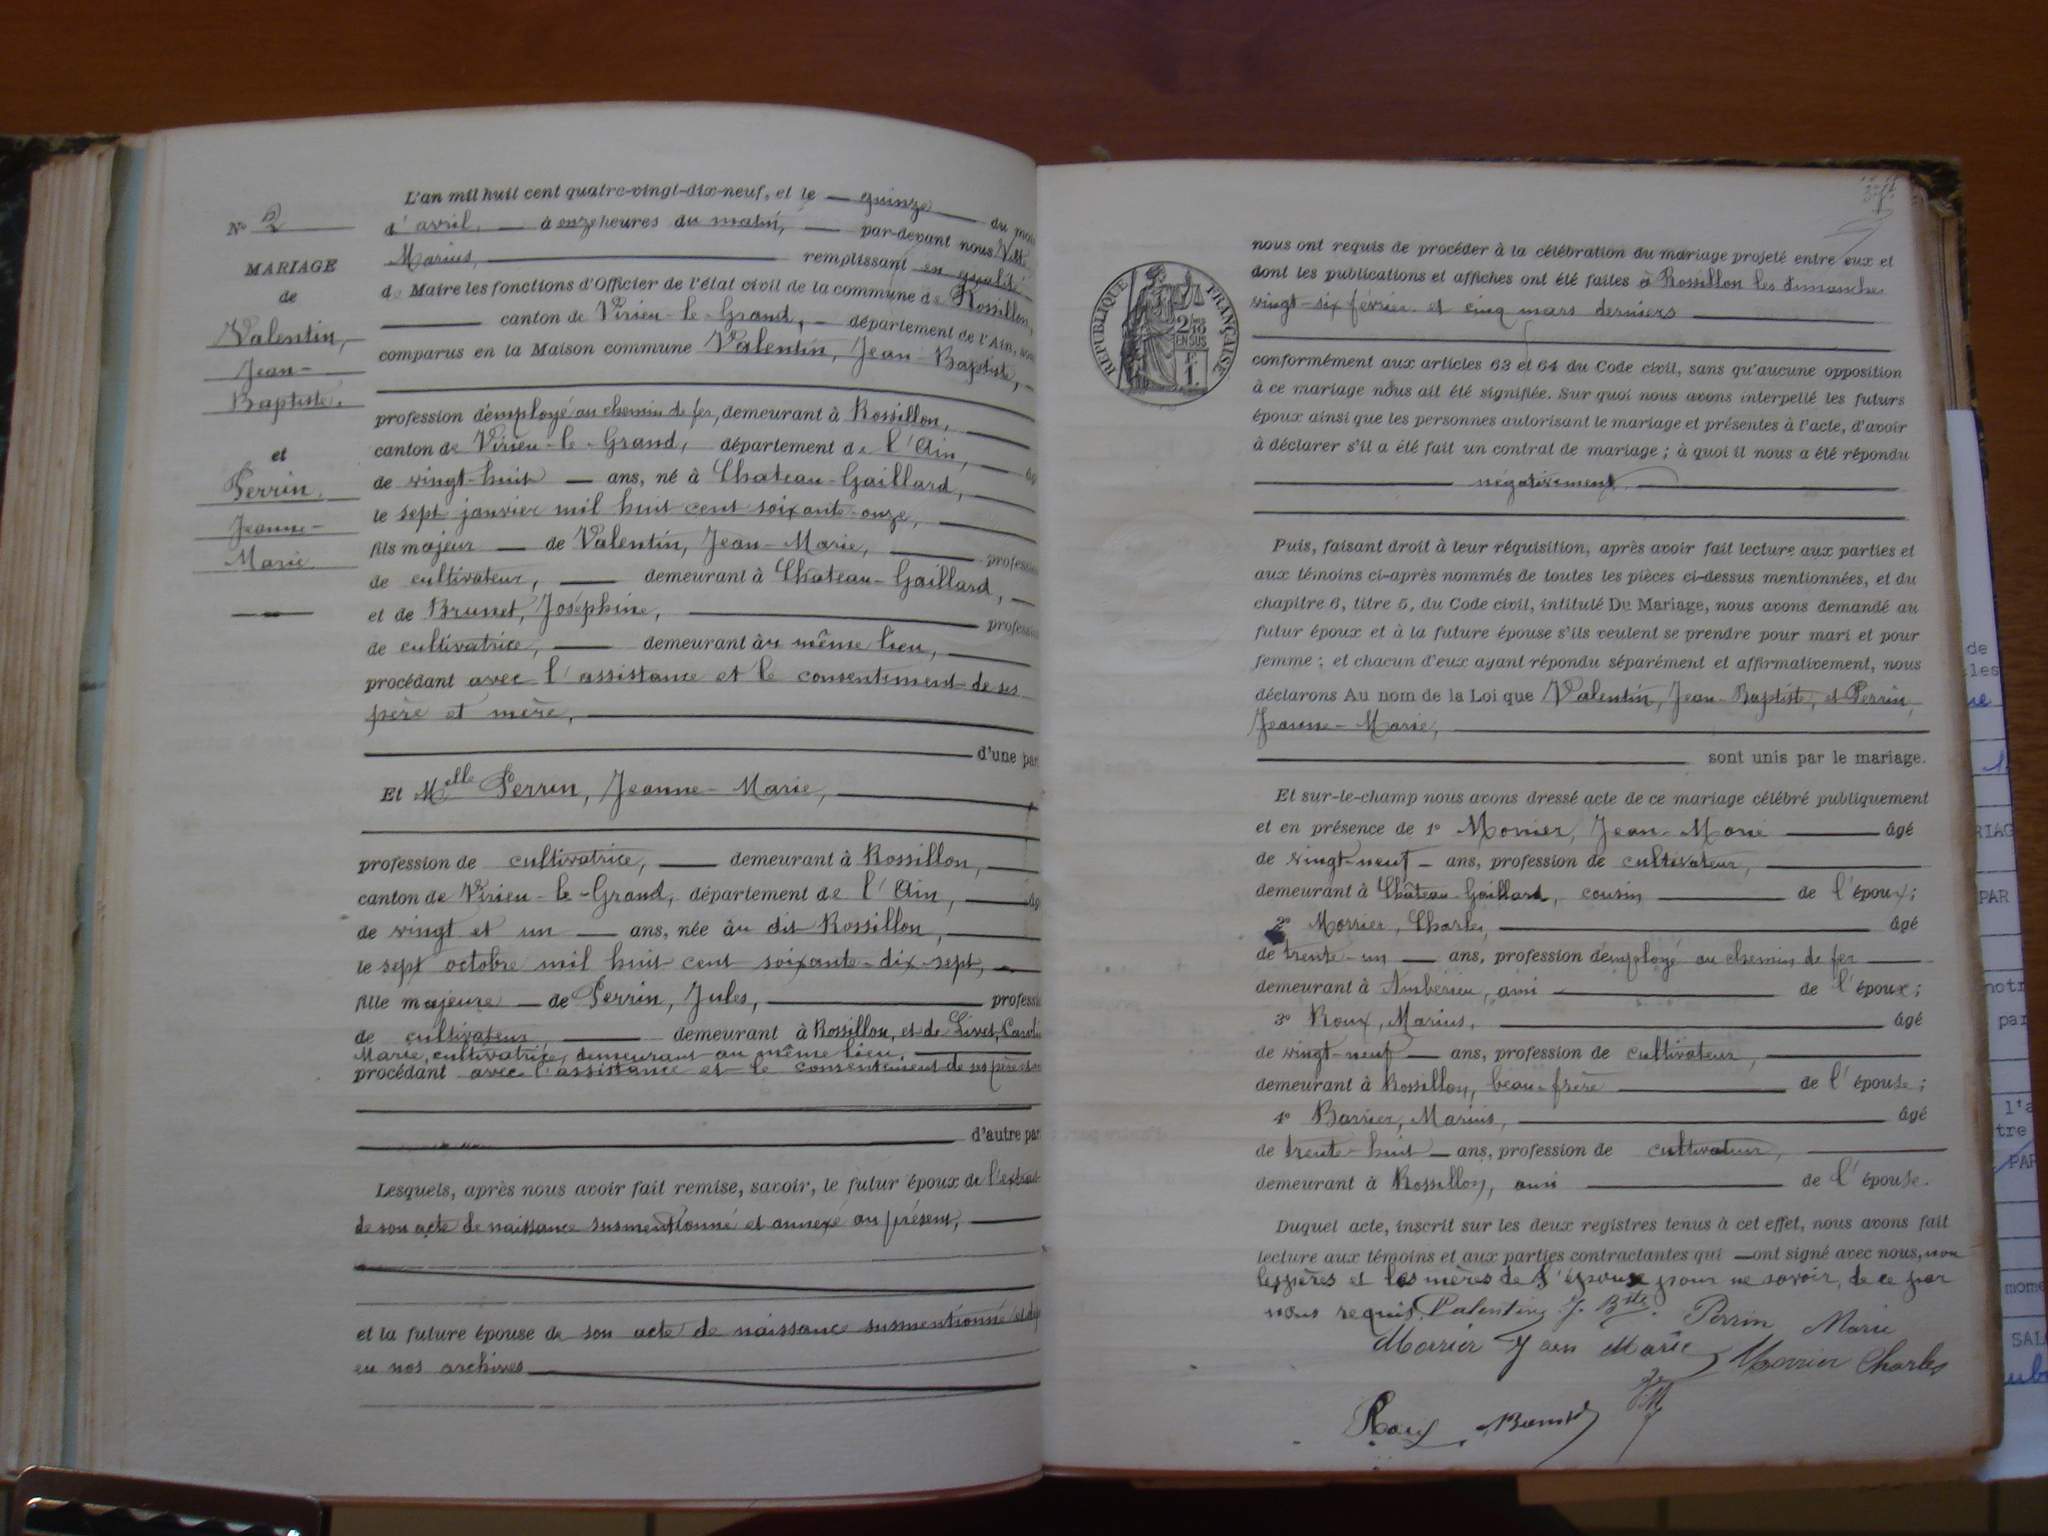 L'an mil huit cent quatre-vingt-dix-neuf, et le quinze du
d'avril, à onze heures du matin, par-devant nous
Marius, remplissant en qualité
de Maire les fonctions d'Officier de l'état civil de la commune de Rossillon,
canton de Virieu-le-Grand, département de l'Ain,
comparus en la Maison commune Valentin, Jean-Baptiste,
profession d'employé au chemin de fer, demeurant à Rossillon,
canton de Virieu-le-Grand, département de l'Ain,
de vingt-huit ans, né à Chateau-Gaillard,
le sept janvier mil huit cent soixante-onze,
fils majeur de Valentin, Jean-Marie, profession
de cultivateur, demeurant à Chateau-Gaillard,
et de Brunet, Joséphine, profession
de cultivatrice, demeurant au même lieu,
procédant avec l'assistance et le consentement de ses
père et mère,
d'une par
Et Melle Perrin, Jeanne-Marie,
profession de cultivatrice, demeurant à Rossillon,
canton de Virieu-le-Grand, département de l'Ain,
de vingt et un ans, née au dit Rossillon,
le sept octobre mil huit cent soixante-dix-sept,
fille majeure de Perrin, Jules, professi
de cultivateur, demeurant à Rossillon, et de Livet,
Marie, cultivatrice, demeurant au même lieu,
procédant avec l'assistance et le consentement de ses père et
d'autre par
Lesquels, après nous avoir fait remise, savoir, le futur époux de l'extrait
de son acte de naissance susmentionné et annexé au présent,
et la future épouse de son acte de naissance susmentionné
en nos archives
N° 2
MARIAGE
de
Valentin,
Jean-
Baptiste.
et
Perrin,
Jeanne-
Marie
RÉPUBLIQUE FRANÇAISE
2/10 EN SUS
1 F.
nous ont requis de procéder à la célébration du mariage projeté entre eux et
dont les publications et affiches ont été faites à Rossillon les dimanches
vingt-six février et cinq mars derniers
conformément aux articles 63 et 64 du Code civil, sans qu'aucune opposition
à ce mariage nous ait été signifiée. Sur quoi nous avons interpellé les futurs
époux ainsi que les personnes autorisant le mariage et présentes à l'acte, d'avoir
à déclarer s'il a été fait un contrat de mariage ; à quoi il nous a été répondu
négativement
Puis, faisant droit à leur réquisition, après avoir fait lecture aux parties et
aux témoins ci-après nommés de toutes les pièces ci-dessus mentionnées, et du
chapitre 6, titre 5, du Code civil, intitulé Du Mariage, nous avons demandé au
futur époux et à la future épouse s'ils veulent se prendre pour mari et pour
femme ; et chacun d'eux ayant répondu séparément et affirmativement, nous
déclarons Au nom de la Loi que Valentin, Jean-Baptiste, et Perrin,
Jeanne-Marie,
sont unis par le mariage.
Et sur-le-champ nous avons dressé acte de ce mariage célébré publiquement
et en présence de 1° Jean-Marie âgé
de vingt-neuf ans, profession de cultivateur,
demeurant à Château-Gaillard, cousin de l'époux ;
2° Morrier, Charles, âgé
de trente-un ans, profession d'employé au chemin de fer
demeurant à Ambérieu, ami de l'époux ;
3° Roux, Marius, âgé
de vingt-neuf ans, profession de cultivateur,
demeurant à Rossillon, beau-frère de l'épouse ;
4° Barrier, Marius, âgé
de trente-huit ans, profession de cultivateur,
demeurant à Rossillon, ami de l'épouse.
Duquel acte, inscrit sur les deux registres tenus à cet effet, nous avons fait
lecture aux témoins et aux parties contractantes qui ont signé avec nous, non
les pères et les mères de l'époux pour ne savoir, de ce par
nous requis. Valentin J. Bte. Perrin Marie
Morrier Jean Marie Morrier Charles
Roux